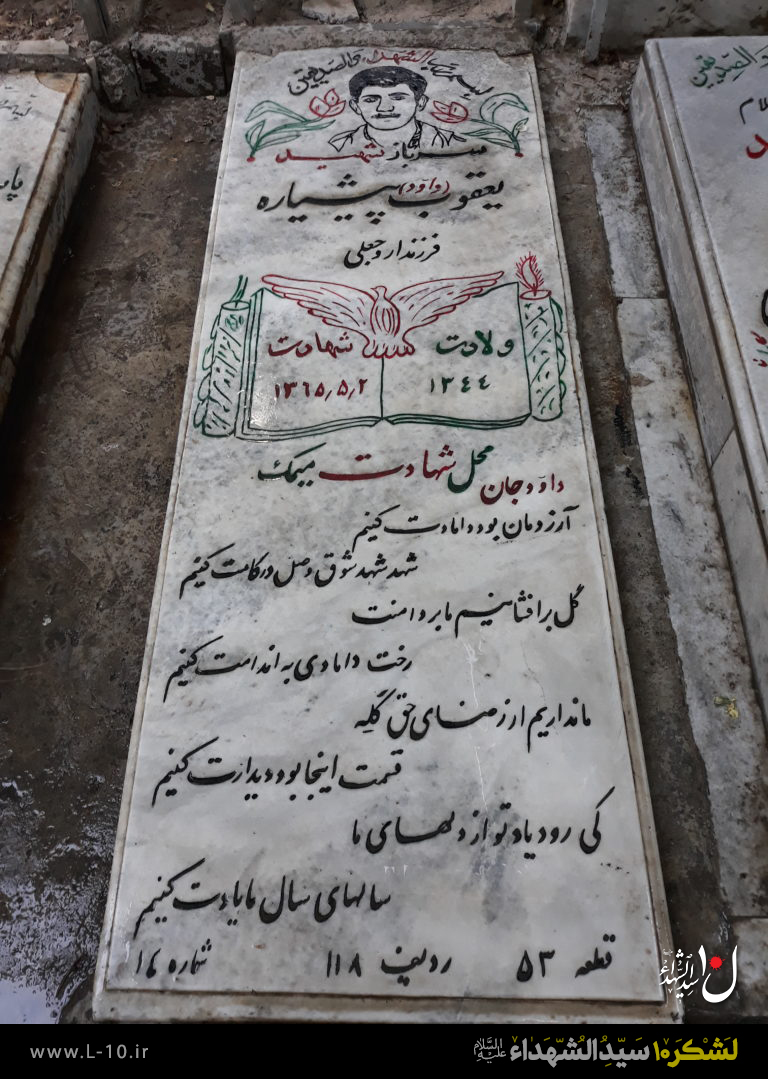 بسم رب الشهداء والصدیقین
سرباز شهید
یعقوب (داود) پیشیاره
فرزند اروجعلی
ولادت شهادت
۱۳۴۴ ۱۳۶۵/۵/۲
محل شهادت میمک
داود جان
آرزومان بود دامادت کنیم
شهد شهد شوق وصل در کامت کنیم
گل برافشانیم ما بر دامنت
رخت دامادی به اندامت کنیم
ما نداریم از رضای حق گله
قسمت اینجا بود دیدارت کنیم
کی رود یاد تو از دلهای ما
سالهای سال ما یادت کنیم
قطعه ۵۳ ردیف ۱۱۸ شماره ۱۷
سیدالشهداء
لشکر۱۰ سیدالشهداء علیه‌السلام
www.L-10.ir